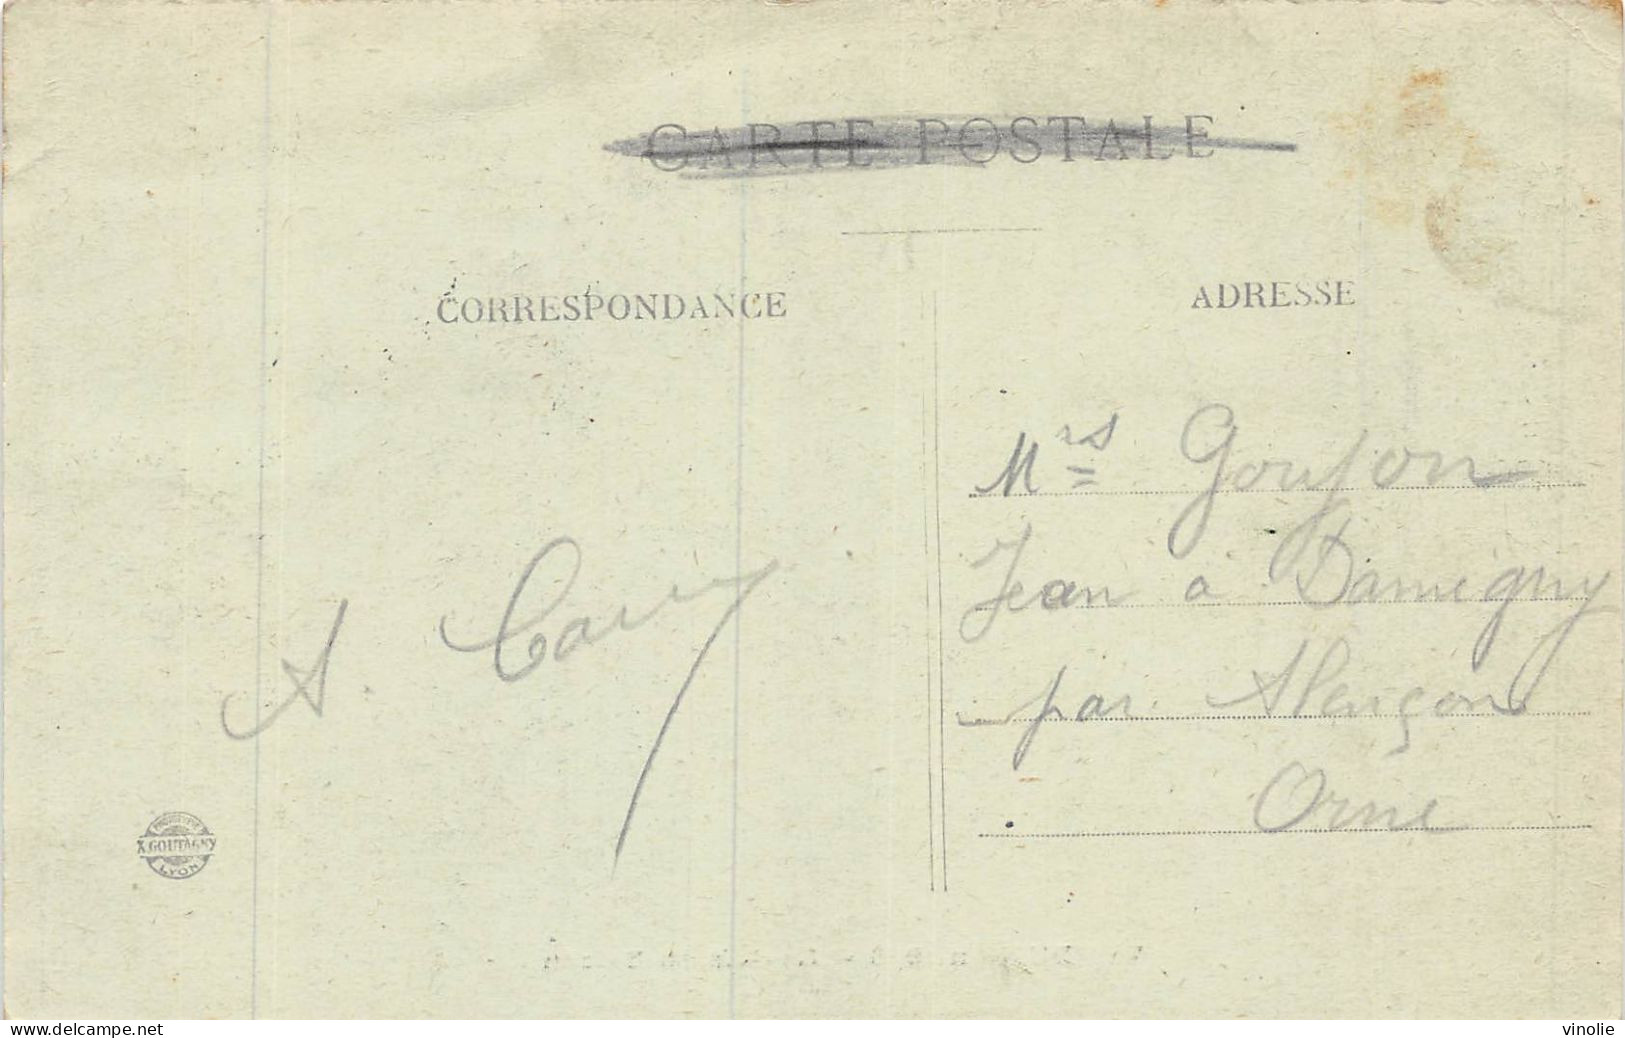 CARTE POSTALE
CORRESPONDANCE
ADRESSE
Mrs Goujon
Jean à Damigny
par Alençon
Orne
A.
PHOTOTYPIE
X. GOUTAGNY
LYON
www.delcampe.net
vinolie